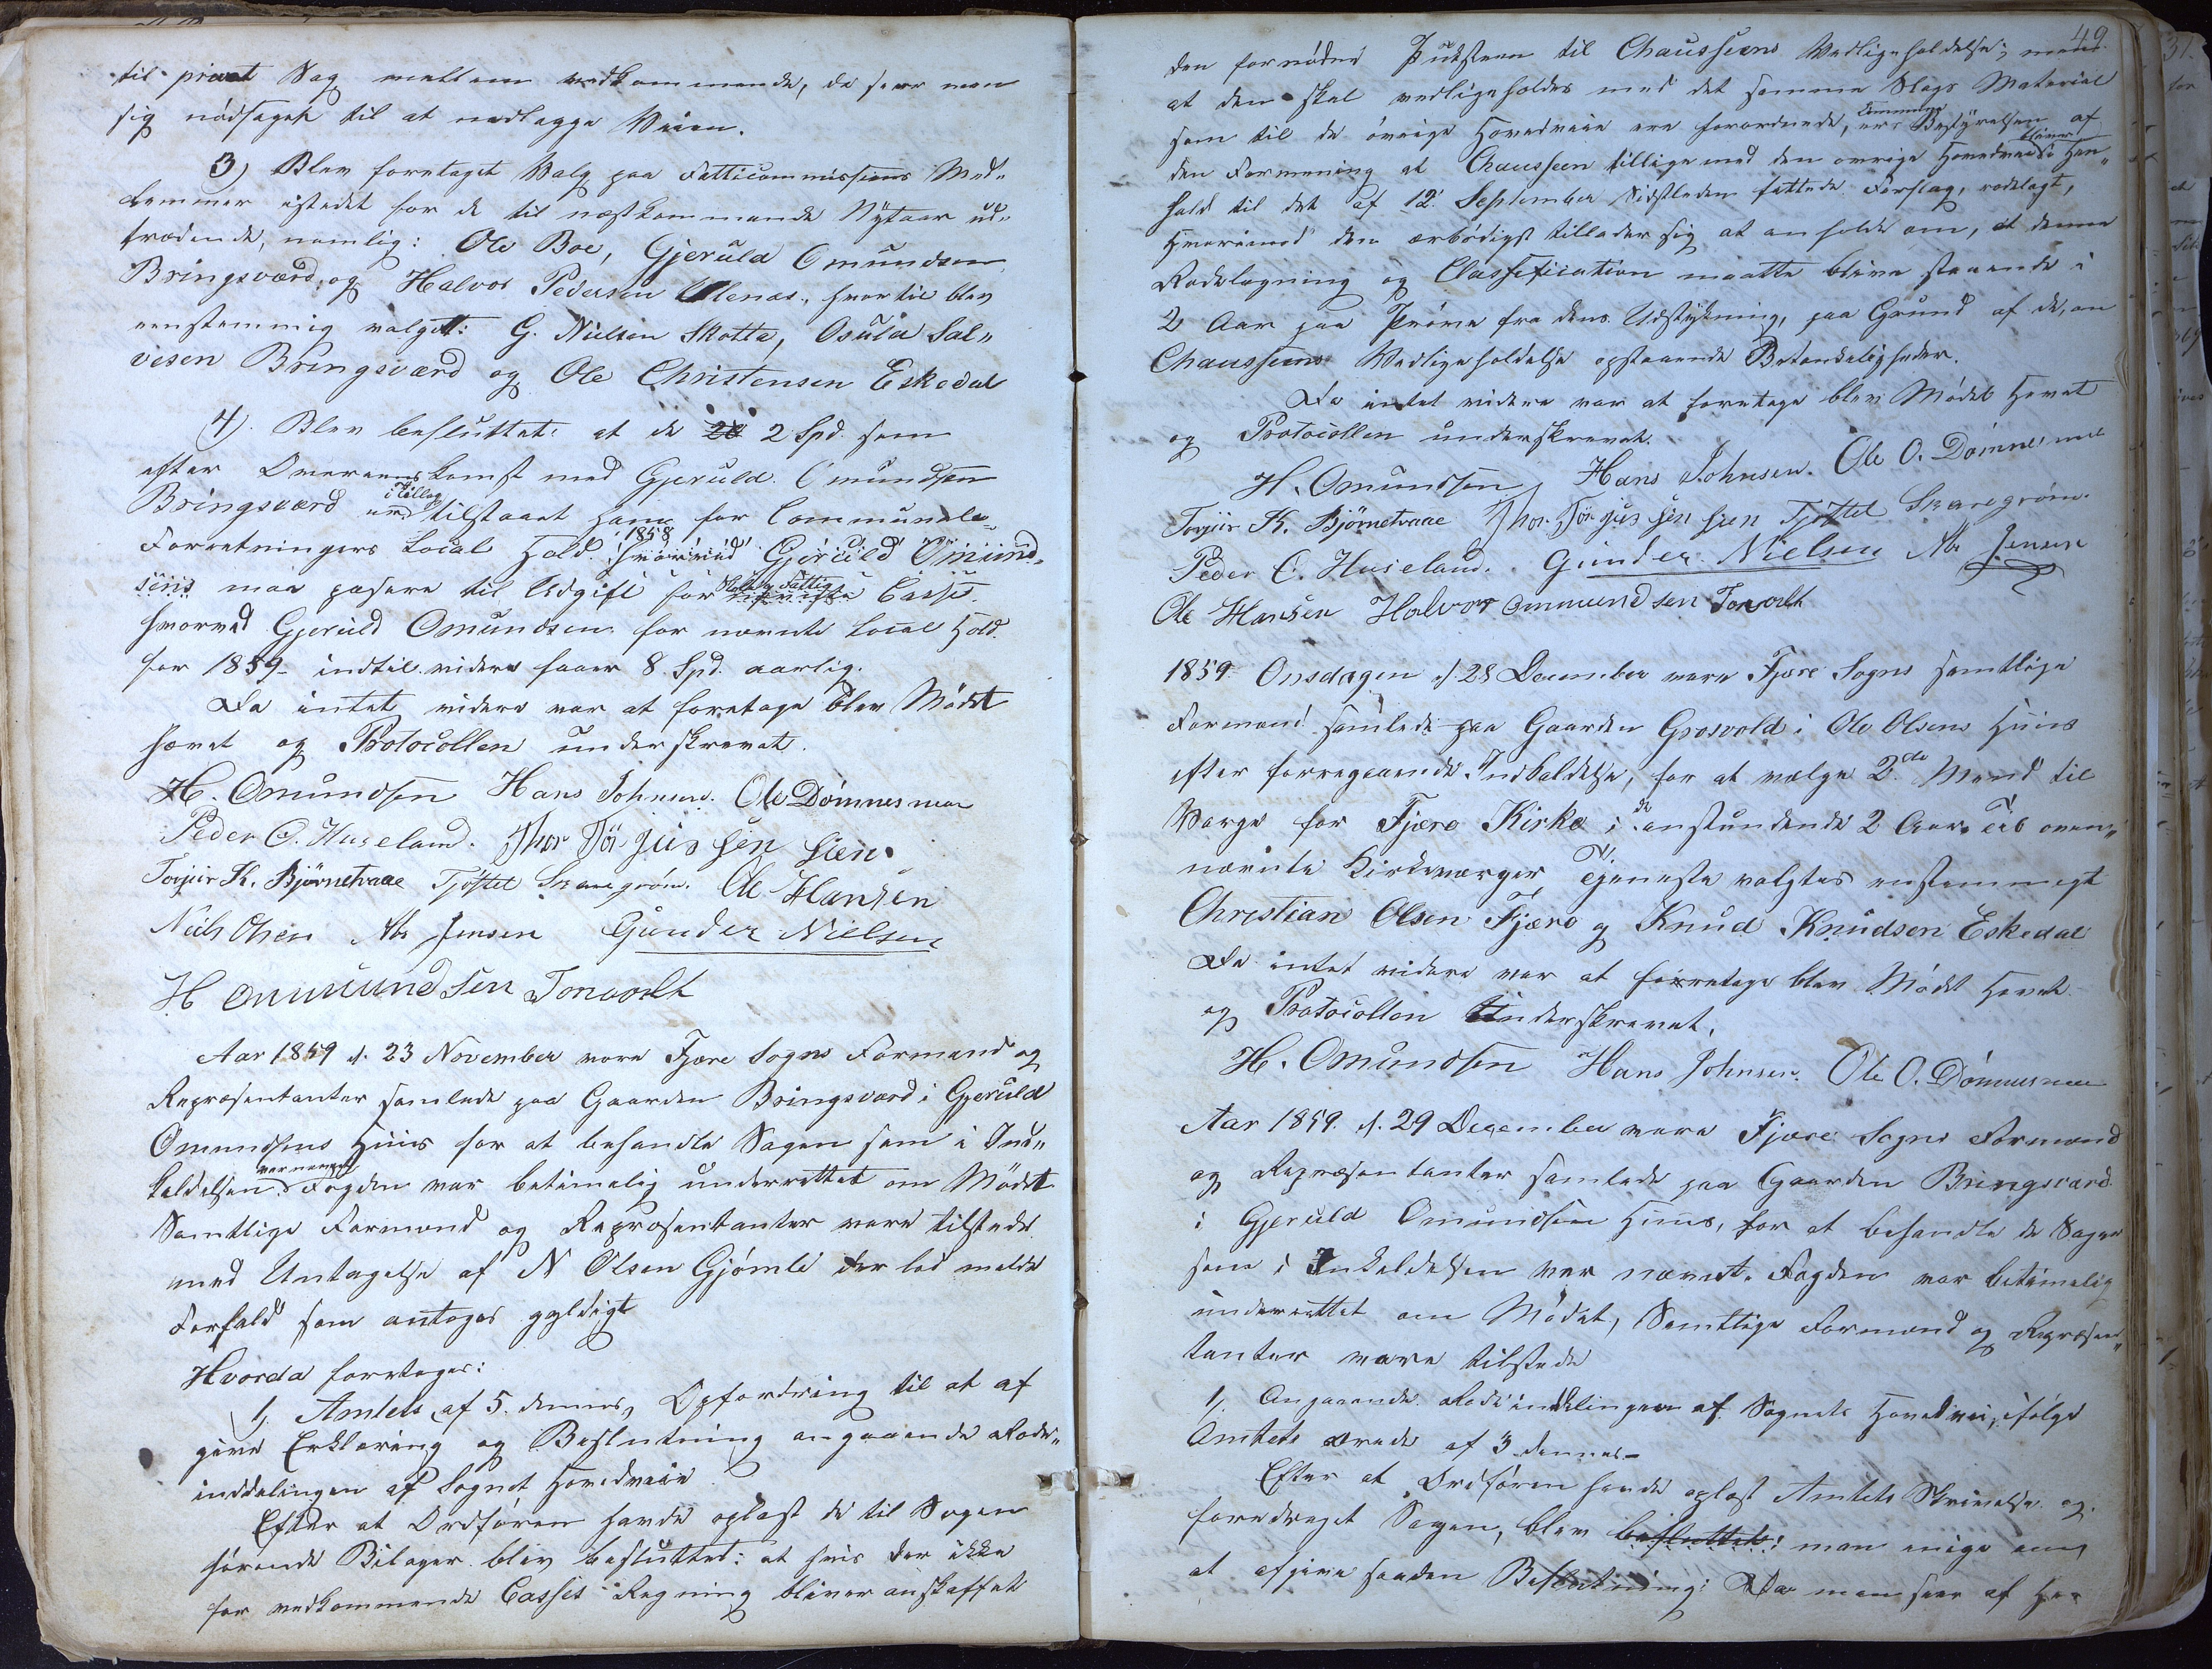 til privat Sag mellem vedkommende, da seer man
sig nødsaget til at nedlægge Veien.
3) Blev foretaget Valg paa Fatticommissions Med„
lemmer istedet for de til næstkommende Nytaar ud„
trædende, nemlig: Ole Boe, Gjeruld Omundsen
Bringsværd, og Halvor Pedersen Ullenæs, hvortil blev
eenstemmig valget: G. Nielsen Skotta, Osuld Sal„
vesen Bringsværd og Ole Christensen Eskedal
4). Blev besluttet: at de 2 Spd. som
efter Overeenskomst med Gjeruld Omundsen
Bringsværd i Tillæg tilstaaet ham for Communale
Forretningers Local Hold 1858 Gjeruld Omund„
sens maa passere til Udgift for Fattig Casse
hvorved Gjeruld Omundsen for nævnte Local Hold
for 1859 indtil videre faaer 8 Spd. aarlig.
Da intet videre var at foretage blev Mødet
hævet og Protocollen underskrevet.
H. Omundsen Hans Johnsen. Ole Dømnesmoe
Peder O. Huseland. Thor Törjussen Sten
Torjur K. Bjørnetraae Tjøstel Skaregrøm. Ole Hansen
Niels Olsen Abr Jensen Gunder Nielsen
H Ommundsen Torvolt
Aar 1859 d. 23 November vare Fjære Sogns Formænd og
Repræsentanter samlede paa Gaarden Bringsværd i Gjeruld
Omundsens Huus for at behandle Sagen som i Ind„
kaldelsen var nævnt Fogden var betimelig underrettet om Mødet
Samtlige Formænd og Repræsentanter vare tilstede
med Untagelse af N Olsen Gjømle der lod melde
Forfald som antoges gyldigt
Hvorda foretoges:
1, Amtets af 5. dennes, Opfordring til at af
give Erklæring og Beslutning angaaende Rode„
inddelingen af Sognet Hovedveie
Efter at Ordføren havde oplæst de til Sagen
hørende Bilager blev besluttet: at hvis der ikke
for vedkommende Casses Regning bliver anskaffet
49.
den fornødne Puksteen til Chausseens Vedligeholdelse;
at den skal vedligeholdes med det samme Slags Material
som til de øvrige Hovedveie ere forordnede, er Commune Bestyrelsen af
den Formening at Chausseen tillige med den øvrige Hovedvei bliver i Hen„
hold til det af 12. September sidstleden fattede Forslag, rodelagt,
Hvorimod den ærbødigst tillader sig at anholde om, at denne
Rodelægning og Classification maatte blive staaende i
2 Aar paa Prøve fra dens Udstykning, paa Grund af de, om
Chausseens Vedligeholdelse opstaaende Betænkeligheder.
Da intet videre var at foretage blev Mødet Hævet
og Protocollen underskrevet.
H. Omundsen, Hans Johnsen. Ole O. Dømnesmoe
Torjur K. Bjørnetraae Thor Törjussen Sten Tjøstel Skaregrøm.
Peder O. Huseland. Gunder Nielsen Abr Jensen
Ole Hansen Halvor Ommundsen Torvolt
1859 Onsdagen d. 28 December vare Fjære Sogns samtlige
Formænd samlede paa Gaarden Grosvold i Ole Olsens Huus
efter forregaaende Indkaldelse, for at vælge 2de Mænd til
Værge for Fjære Kirke i de anstundende 2 Aar. Til oven„
nævnte Kirkeværger Tjeneste valgtes enstemmigt
Christian Olsen Fjære og Knud Knudsen Eskedal
Da intet videre var at foretage blev Mødet Hævet
og Protocollen Underskrevet.
H. Omundsen Hans Johnsen. Ole O. Dømnesmoe
Aar 1859. d. 29 December vare Fjære Sogns Formænd
og Repræsentanter samlede paa Gaarden Bringsværd
i Gjeruld Omundsens Huus, for at behandle de Sager
som i Inkaldelsen var nævnt. Fogden var betimelig
underrettet om Mødet, Samtlige Formænd og Repræsen„
tanter vare tilstede
1, Angaaende Rodeinddelingen af Sognets Hovedvei, ifølge
Amtets ærede af 3 dennes
Efter at Ordføren havde oplæst Amtets Skrivelse og
foredraget Sagen, blev besluttet: man enige om
at afgive saaden Beslutning: Da man seer af Her